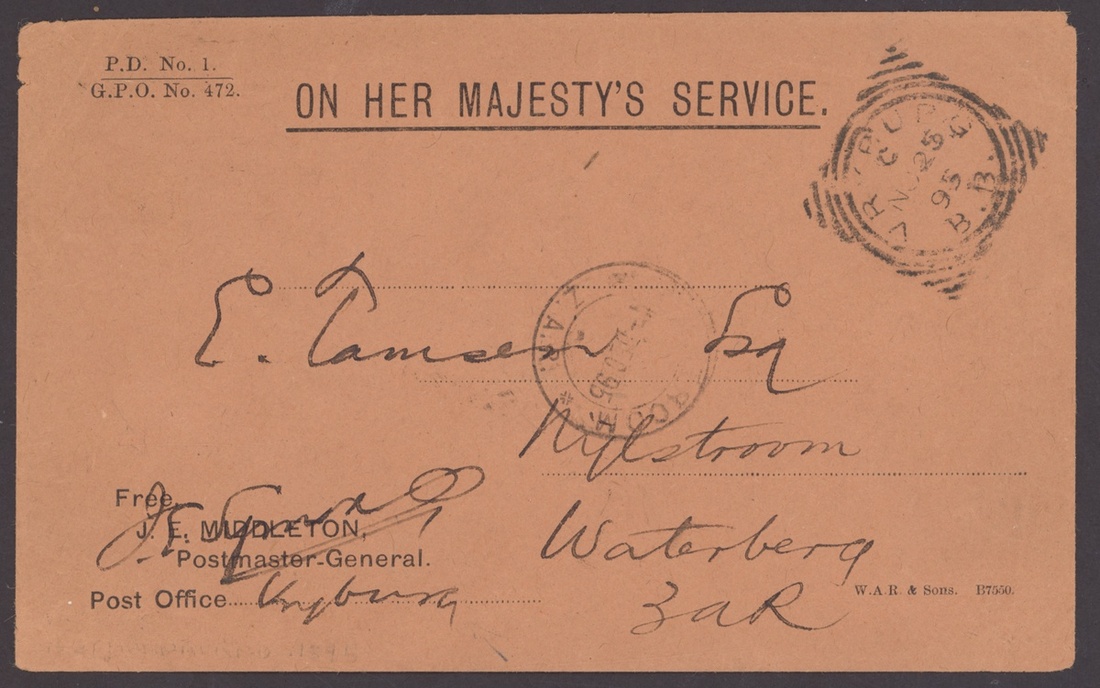 P.D. No. 1.
G.P.O. No. 472.
ON HER MAJESTY'S SERVICE.
VRYBURG
C
NO 25
95
B.B.
E. Tamsen Esq
Z.A.R.
95
Nylstroom
Waterberg
ZAR
Free,
J. E. MIDDLETON,
Postmaster-General.
Post Office Vryburg
W.A.R. & Sons. B7550.